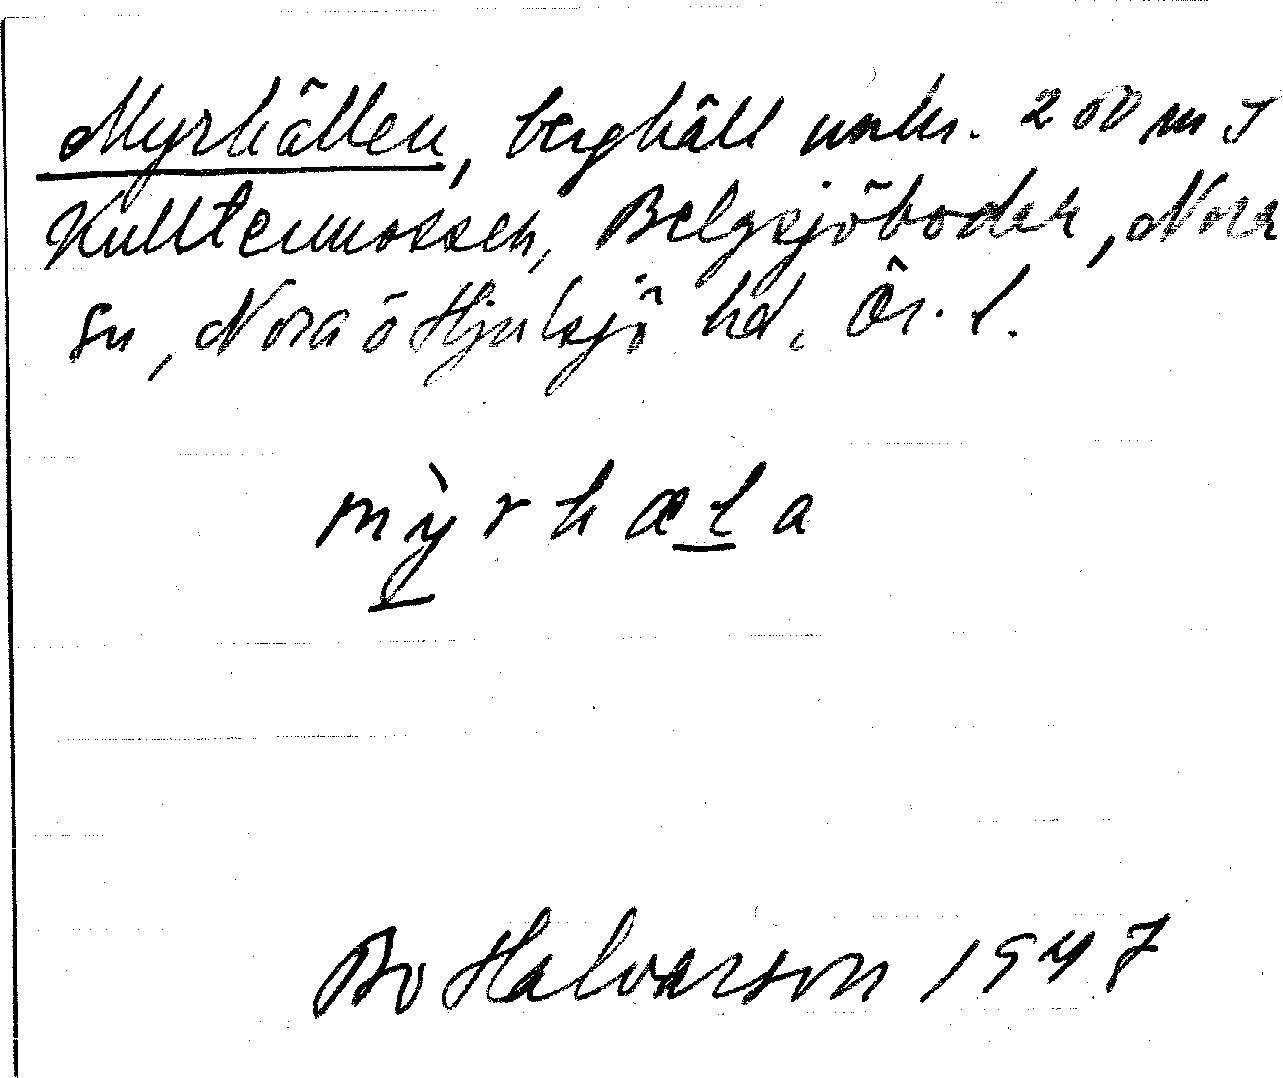 Myrhällen, berghäll unkr. 200 m S
Kulltennossen, Belgsjöbodar, Nora
sn, Nora ö Hjulsjö hd, Ör. l.
mỳrhæla
Bo Halvarson 1947